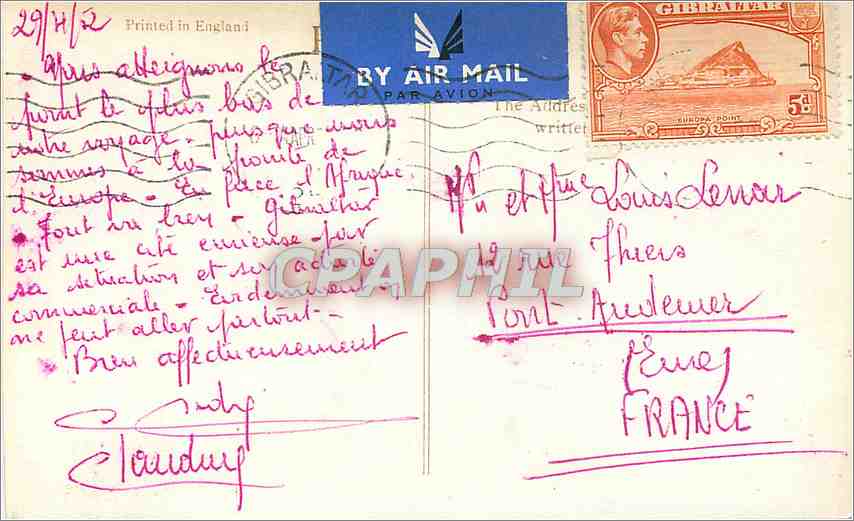 29/4/52
Printed in England
BY AIR MAIL
PAR AVION
GIBRALTAR
GIBRALTAR
EUROPA POINT
5d
The Address
writte
atteignons le
point le plus bas de
notre voyage. puisque nous
sommes à la pointe de
l'Europe - En face l'Afrique.
Tout va bien - Gibraltar
est une cité curieuse par
sa situation et son activité
commerciale -
ne peut aller partout -
Bien affectueusement
Claudine
et Mme Louis Lenoir
12 rue Thiers
Pont-Audemer
(Eure)
FRANCE
CPAPHIL